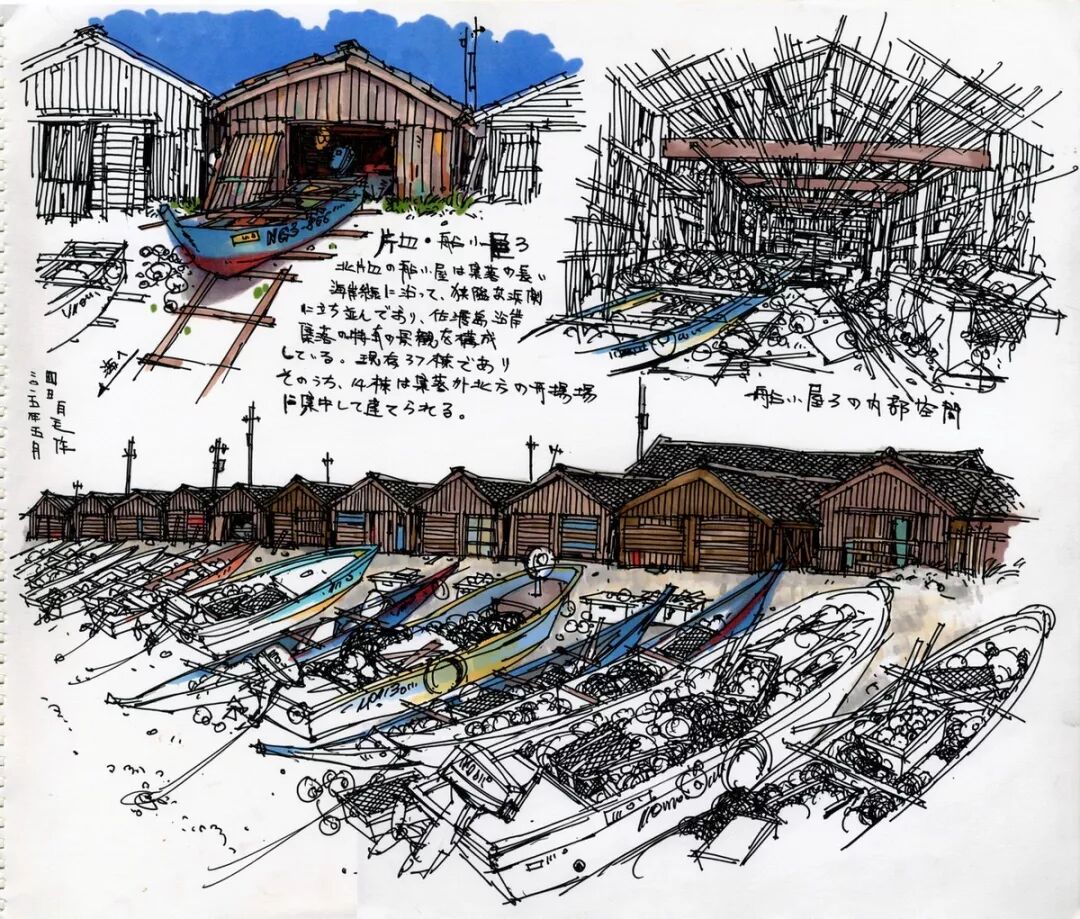 NG3-866
片辺・船小屋3
北片辺の船小屋は集落の長い
海岸線に沿って、狭隘な浜側
に立ち並んであり、佐渡島沿岸
集落の特有の景観を構成
している。現存37棟であり
そのうち、14棟は集落外北方の
に集中して建てられる。
海へ
二〇二五年五月
船小屋3の内部空間